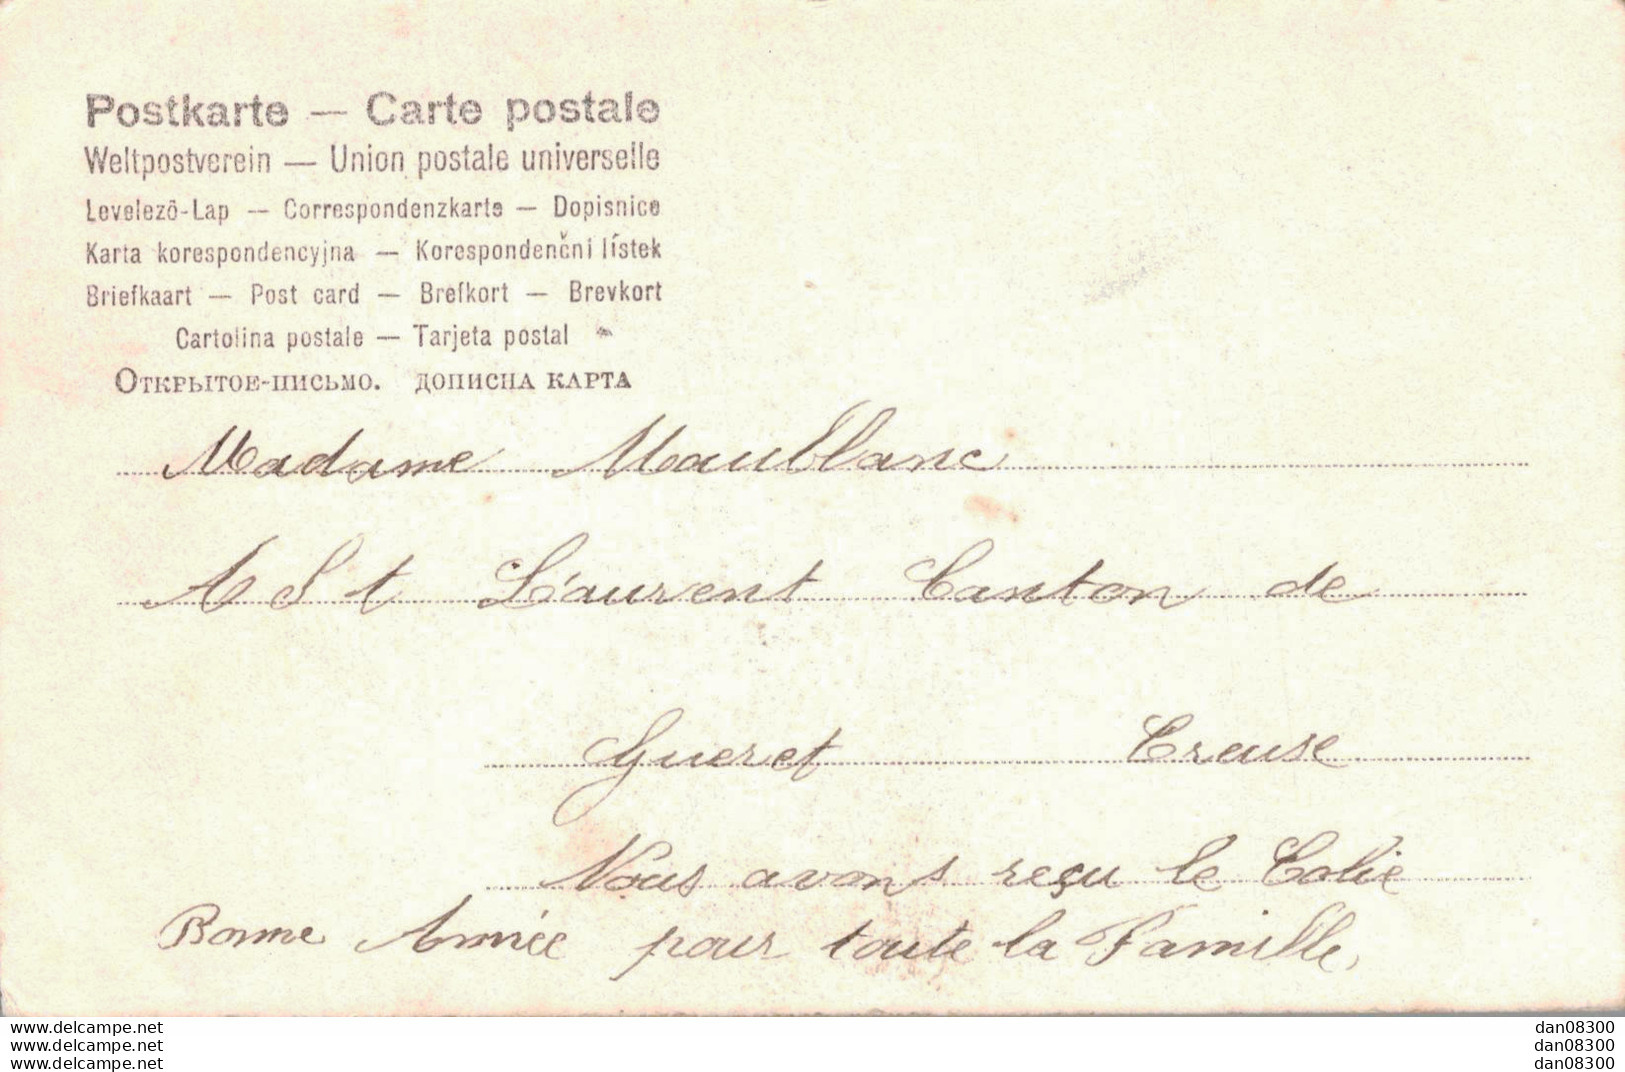 Postkarte — Carte postale
Weltpostverein — Union postale universelle
Levelezō-Lap — Correspondenzkarte — Dopisnice
Karta korespondencyjna — Korespondenční lístek
Briefkaart — Post card — Brefkort — Brevkort
Cartolina postale — Tarjeta postal
Открытое-письмо. дописна карта
Madame Maublanc
A St Laurent Canton de
Gueret Creuse
Nous avons reçu le Colie
Bonne Année pour toute la Famille,
www.delcampe.net
www.delcampe.net
www.delcampe.net
dan08300
dan08300
dan08300